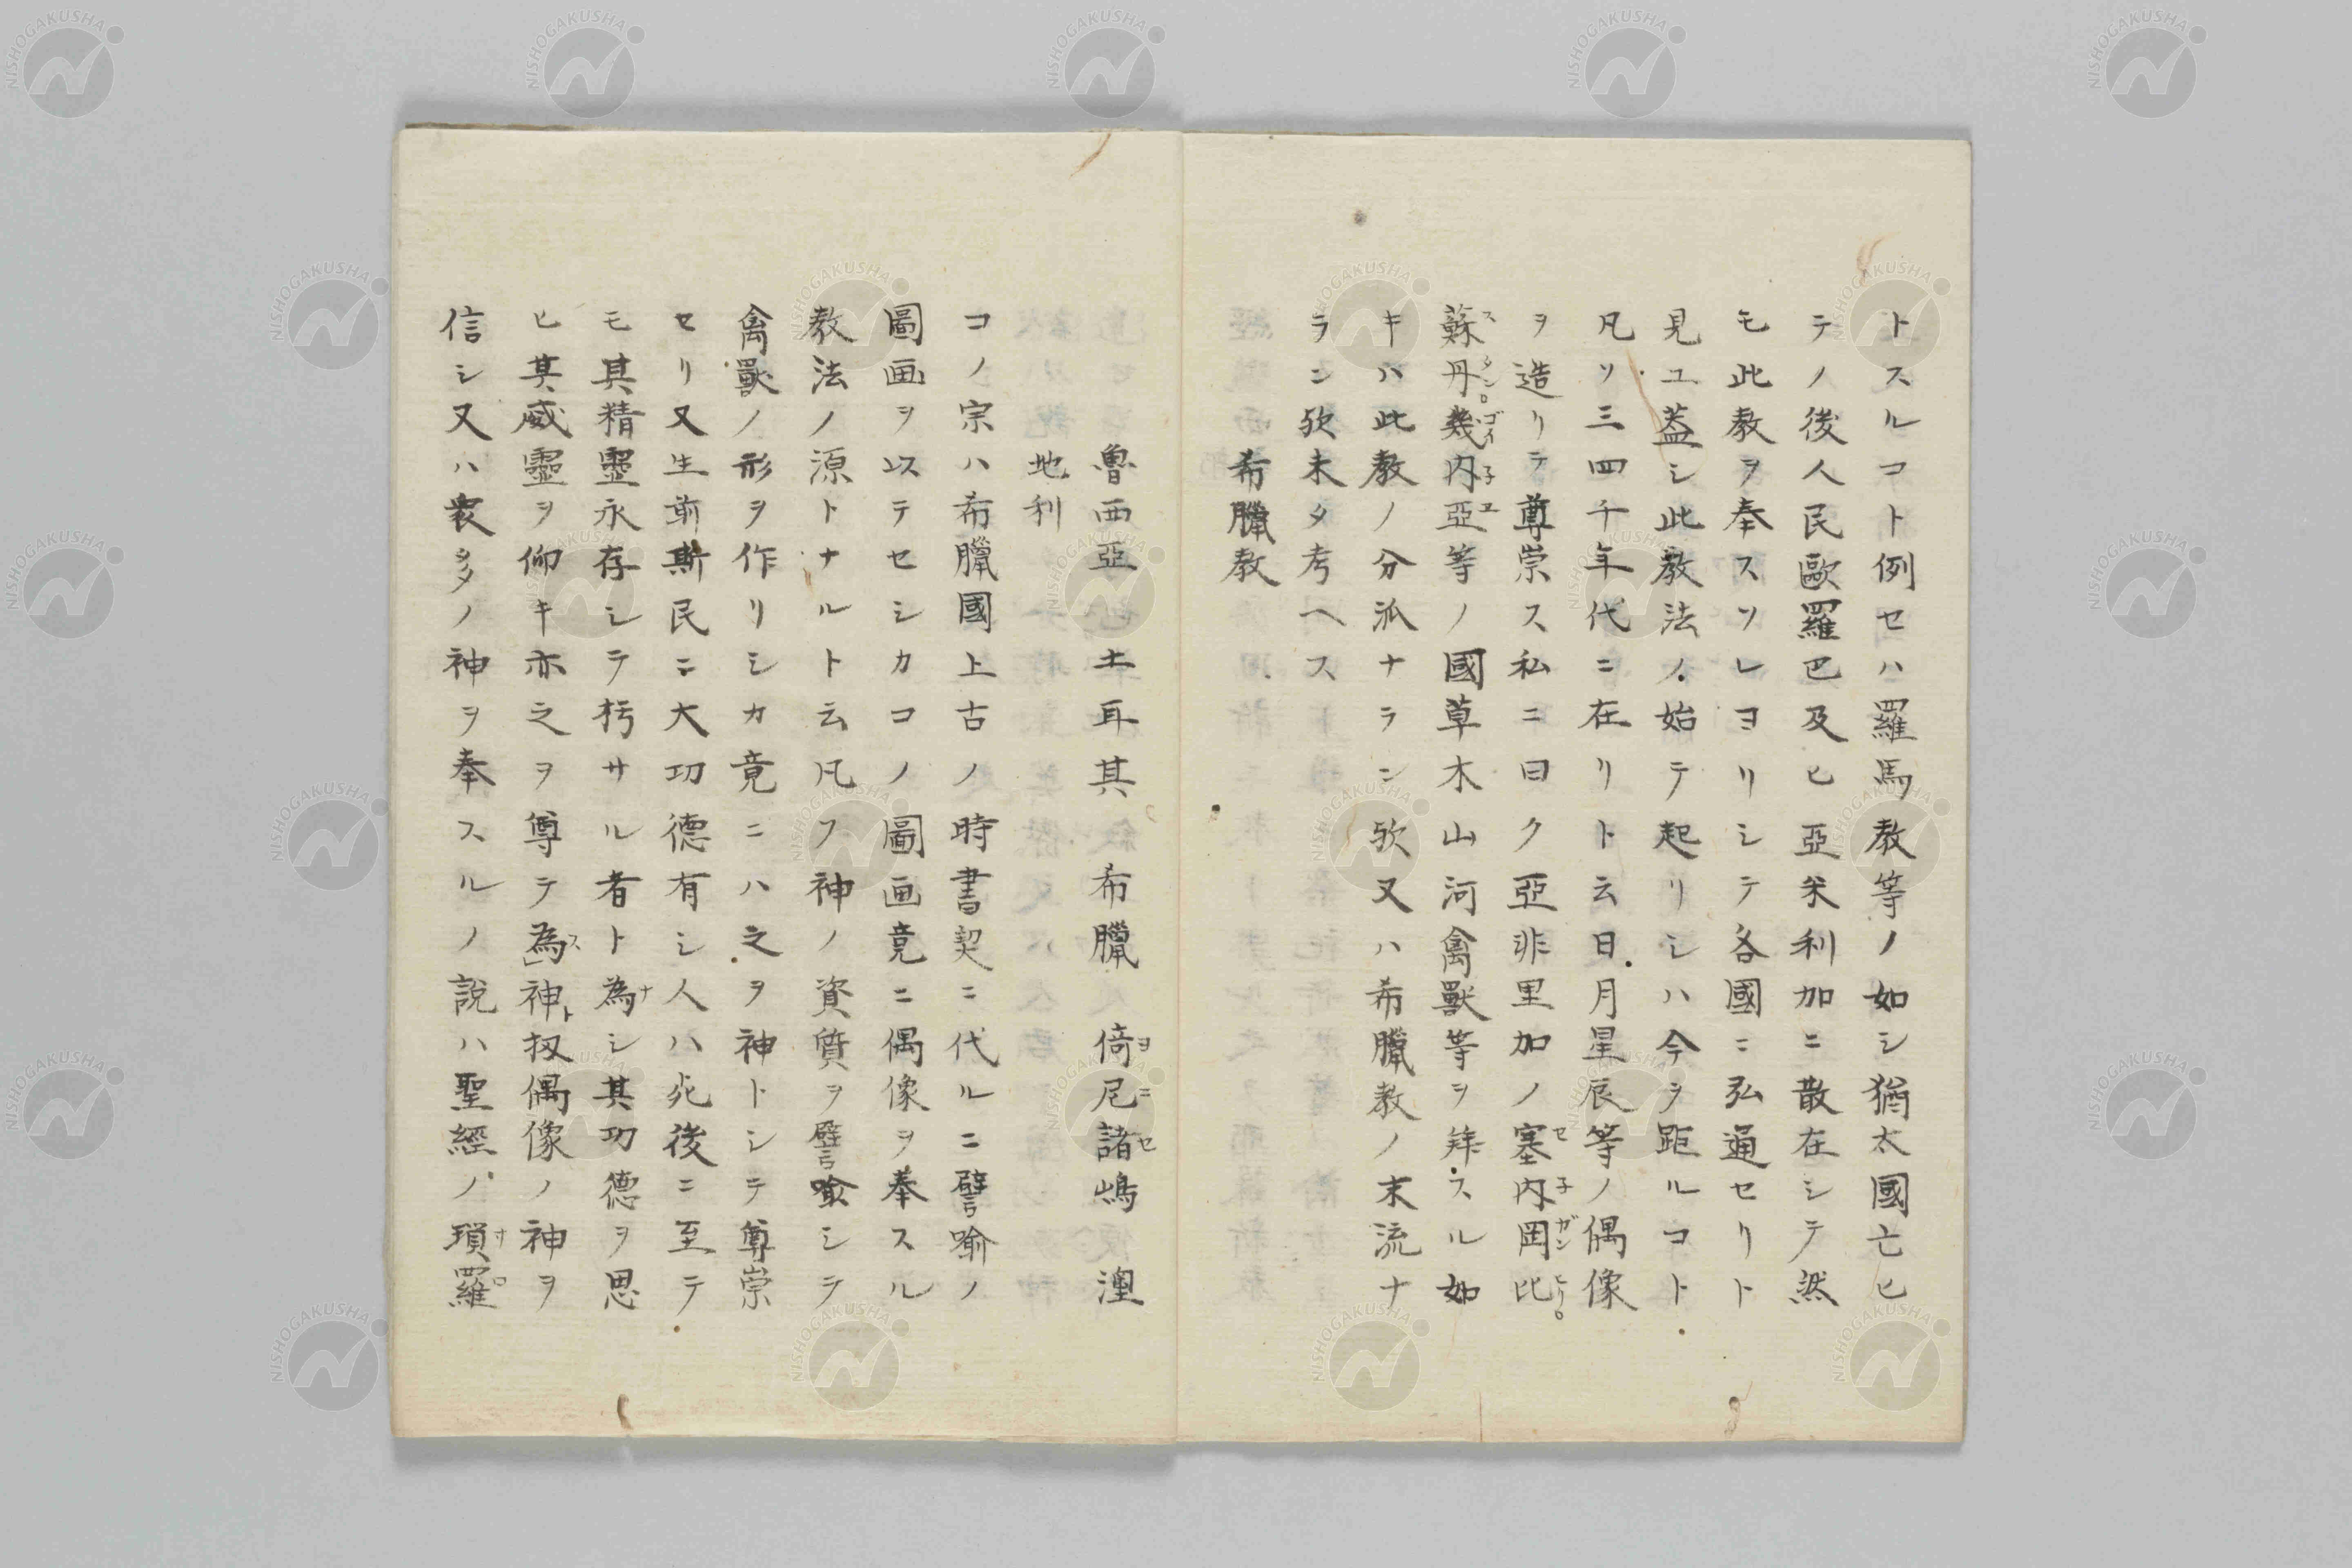 トスルコト例セハ羅馬教等ノ如シ猶太國亡ヒ
テノ後人民歐羅巴及ヒ亞米利加ニ散在シテ然
モ此教ヲ奉スソレヨリシテ各國ニ弘通セリト
見ユ蓋シ此教法ノ始テ起リシハ今ヲ距ルコト
凡ソ三四千年代ニ在リト云日月星辰等ノ偶像
ヲ造リテ尊崇ス私ニ曰ク亞非里加ノ塞内岡比
蘇丹幾内亞等ノ國草木山河禽獸等ヲ拜スル如
キハ此教ノ分派ナラン欤又ハ希臘教ノ末流ナ
ラン欤未タ考ヘス
希臘教
魯西亞 土耳其 希臘 倚尼諸嶋 澳
地利
コノ宗ハ希臘國上古ノ時書契ニ代ルニ譬喻ノ
圖画ヲ以テセシカコノ圖画竟ニ偶像ヲ奉スル
教法ノ源トナルト云凡ソ神ノ資質ヲ譬喻シテ
禽獸ノ形ヲ作リシカ竟ニハ之ヲ神トシテ尊崇
セリ又生前斯民ニ大功德有シ人ハ死後ニ至テ
モ其精靈永存シテ朽サル者ト為シ其功德ヲ思
ヒ其威靈ヲ仰キ亦之ヲ尊テ為神扨偶像ノ神ヲ
信シ又ハ衆多ノ神ヲ奉スルノ說ハ聖經ノ瑣羅
NISHOGAKUSHA